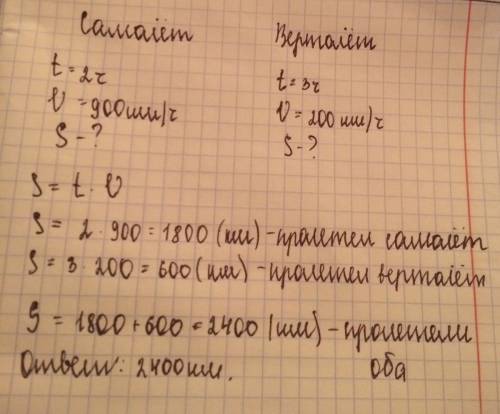 Самолёт
t = 2ч
V = 900 км/ч
S - ?
Вертолёт
t = 3ч
V = 200 км/ч
S - ?
S = t · V
S = 2 · 900 = 1800 (км) - пролетел самолёт
S = 3 · 200 = 600 (км) - пролетел вертолёт
S = 1800 + 600 = 2400 (км) - пролетели
оба
Ответ: 2400 км.